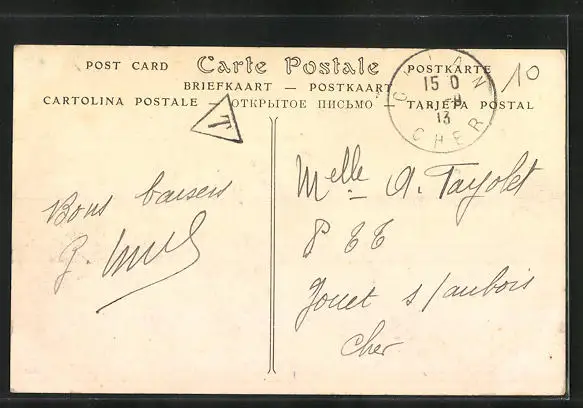 POST CARD Carte Postale POSTKARTE
BRIEFKAART — POSTKAART
CARTOLINA POSTALE — ОТКРЫТОЕ ПИСЬМО — TARJETA POSTAL
T
15 0
13
CHER
10
Bons baisers
Melle A. Tayolet
P T T
Jouet s/aubois
Cher